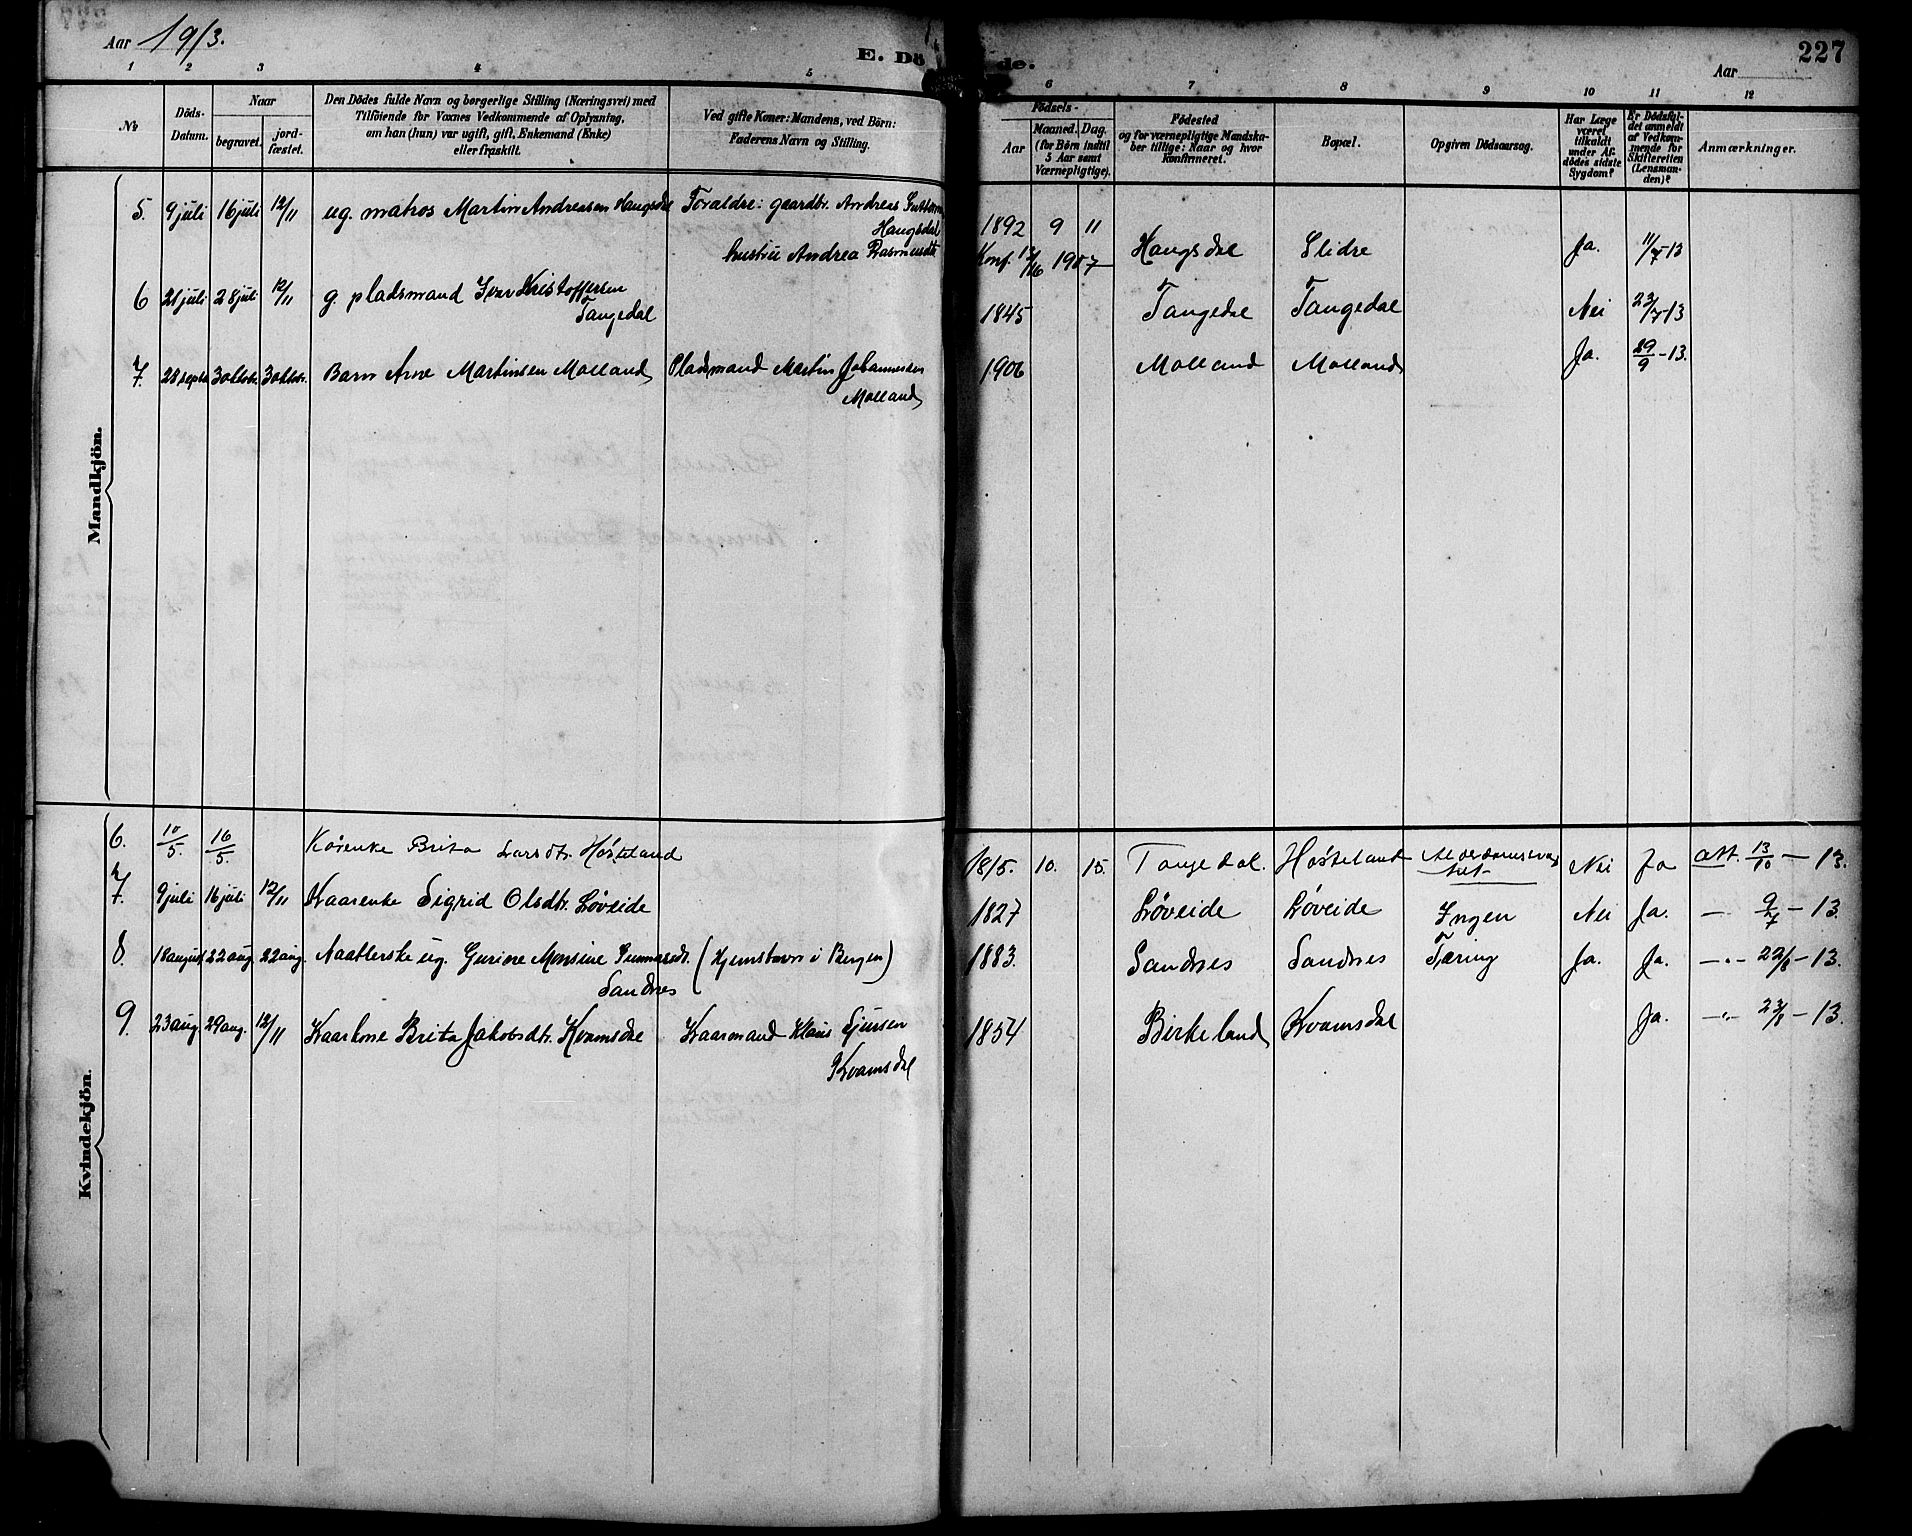 Aar 1913.
E. Dö
de.
Aar
227
1 2 3 4 5 6 7 8 9 10 11 12
No
Döds-
Datum.
Naar
begravet.
jord-
fæstet.
Den Dödes fulde Navn og borgerlige Stilling (Næringsvei) med
Tilföiende for Voxnes Vedkommende af Oplysning,
om han (hun) var ugift, gift, Enkemand (Enke)
eller fraskilt.
Ved gifte Koner: Mandens, ved Börn:
Faderens Navn og Stilling.
Födsels-
Aar
Maaned. Dag.
(for Börn indtil
5 Aar samt
Værnepligtige).
Födested
og for værnepligtige Mandska-
ber tillige: Naar og hvor
Konfirmeret.
Bopæl.
Opgiven Dödsaarsag.
Har Læge
været
tilkaldt
under Af-
dödes sidste
Sygdom?
Er Dödsfal-
det anmeldt
af Vedkom-
mende for
Skifteretten
(Lensman-
den)?
Anmærkninger.
Mandkjön.
5. 9 juli 16 juli 12/11 ug. matros Martin Andreasen Haugsdal Forældre: gaardbr. Andreas
Haugsdal
hustru Andrea Rasmusdtr
1892 9 11
Konf. 1907 Haugsdal Slidre Ja. 11/7-13
6 21 juli 28 juli 12/11 g. pladsmand Ivar Kristoffersen
Tangedal
1845 Tangedal Tangedal Nei 23/7-13
7. 28 septr 3 oktbr. 3 oktbr. Barn Arne Martinsen Molland Pladsmand Martin Johannesen
Molland
1906 Molland Molland Ja. 29/9-13.
Kvindekjön.
6. 10/5. 16/5. Kårenke Brita Larsdtr. Høsteland
1815. 10. 15. Tangedal. Høsteland Nei Ja att. 13/10 - 13.
7. 9 juli 16 juli 12/11 Kaarenke Sigrid Olsdtr. Løveide
1827 Løveide Løveide Ingen Nei Ja. -"- 9/7 - 13.
8. 18 august 22 aug. 22 aug. Naatlerske ug. Guriore Monsine Gunnarsdtr. (Hjemstavn i Bergen)
Sandnes
1883. Sandnes Sandnes Tæring Ja. Ja. -"- 22/8 - 13.
9. 23 aug. 29 aug. 12/11 Kaarkone Brita Jakobsdtr. Kvamsdal Kaarmand Klaus Sjursen
Kvamsdal
1854 Birkeland Kvamsdal Ja. -"- 23/8 - 13.